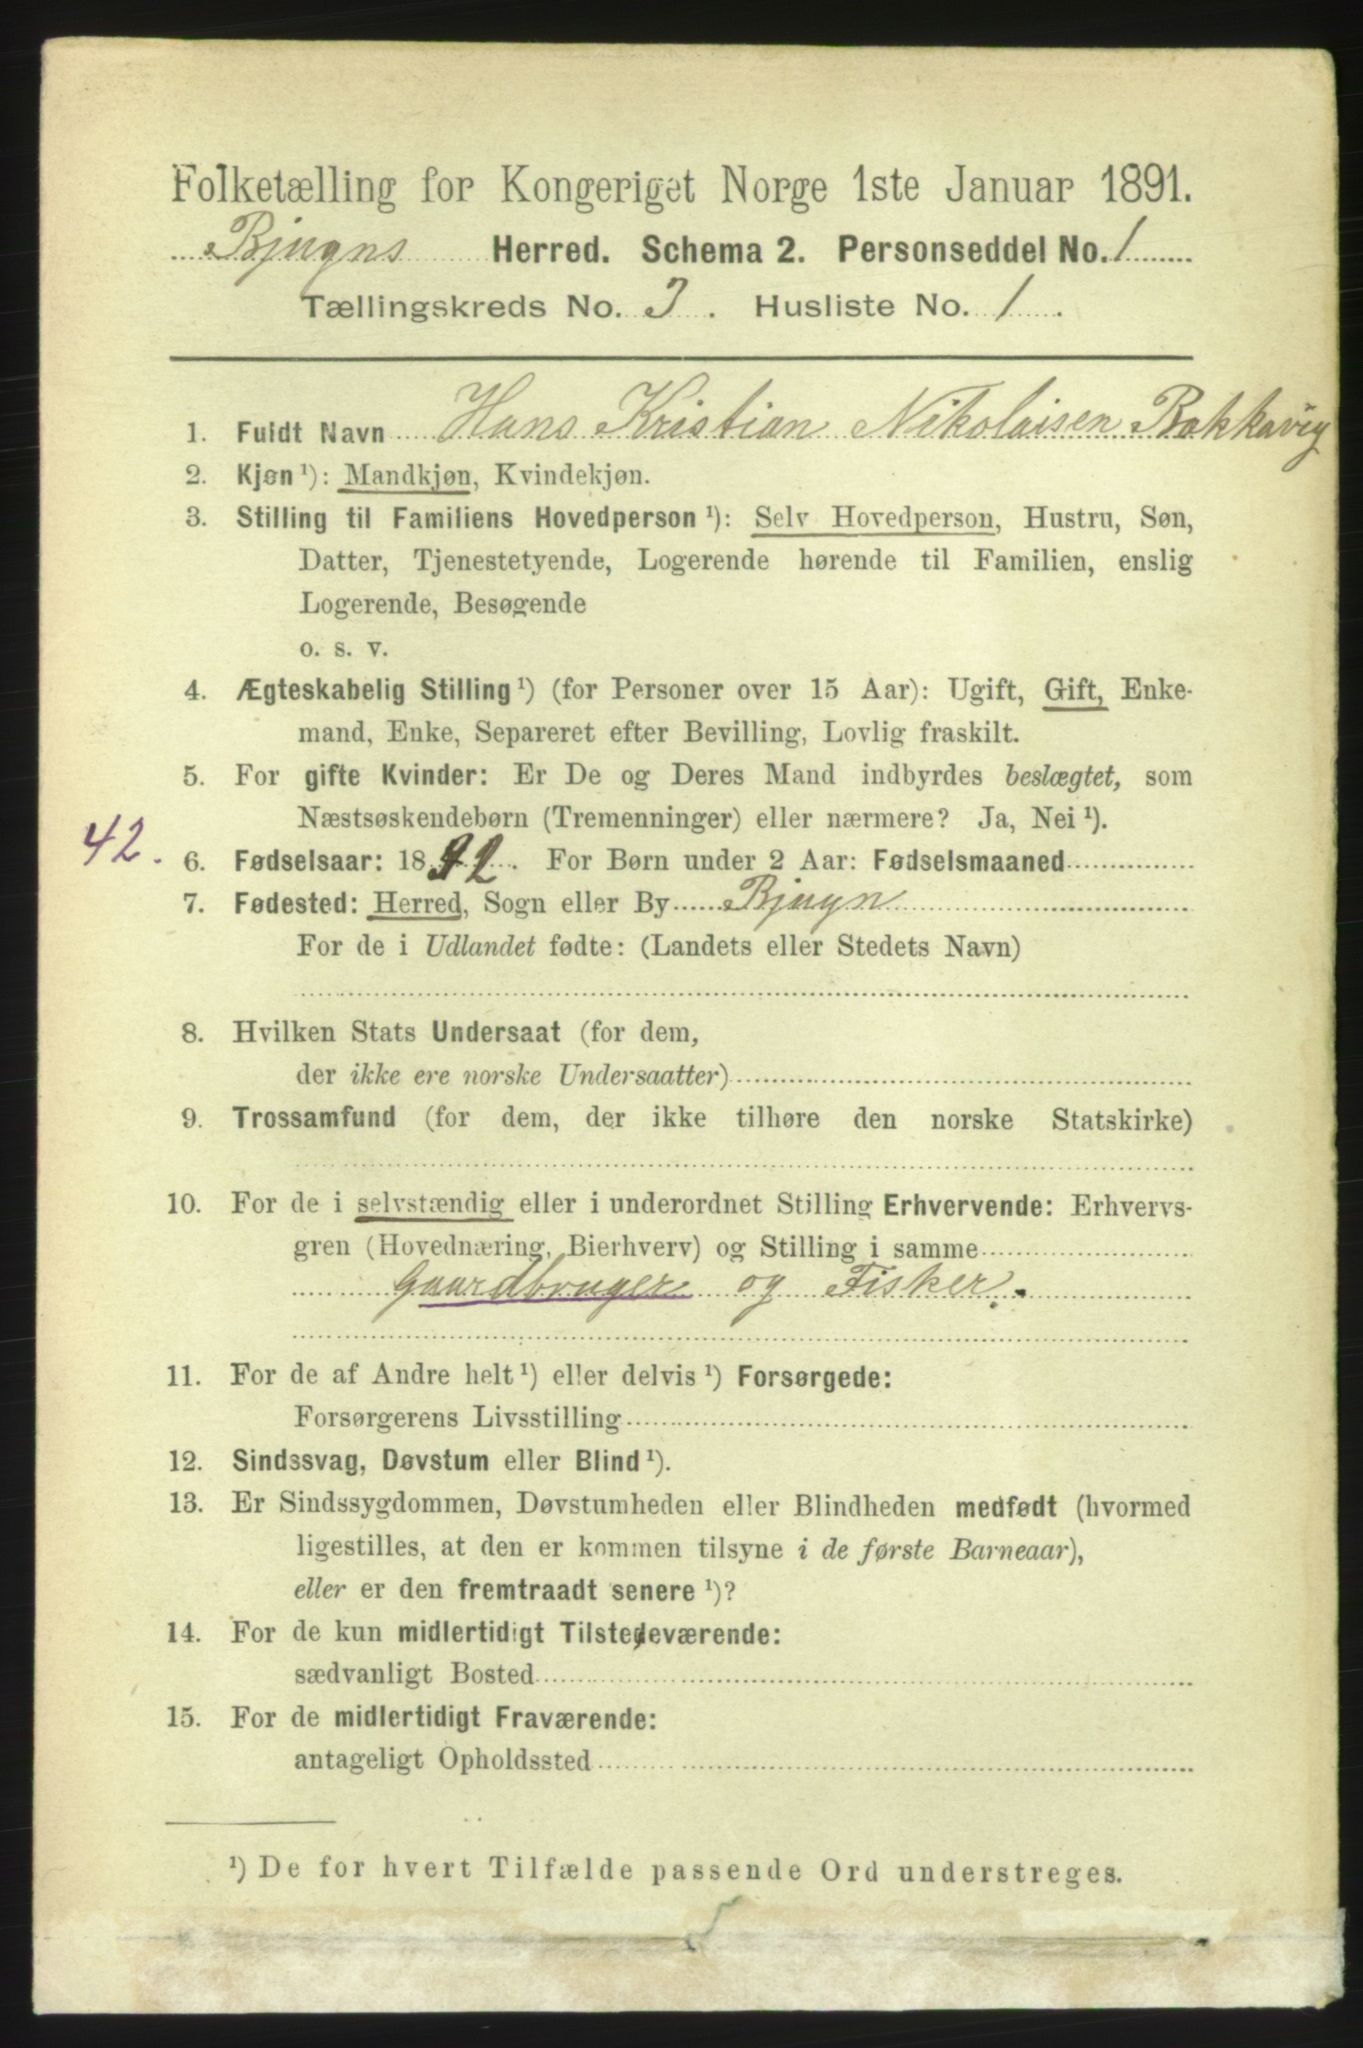 Folketælling for Kongeriget Norge 1ste Januar 1891.
Bjugns Herred. Schema 2. Personseddel No. 1
Tællingskreds No. 3. Husliste No. 1.
1. Fuldt Navn Hans Kristian Nikolaisen Bakkavig
2. Kjøn ¹): Mandkjøn, Kvindekjøn.
3. Stilling til Familiens Hovedperson ¹): Selv Hovedperson, Hustru, Søn,
Datter, Tjenestetyende, Logerende hørende til Familien, enslig
Logerende, Besøgende
o. s. v.
4. Ægteskabelig Stilling ¹) (for Personer over 15 Aar): Ugift, Gift, Enke-
mand, Enke, Separeret efter Bevilling, Lovlig fraskilt.
5. For gifte Kvinder: Er De og Deres Mand indbyrdes beslægtet, som
Næstsøskendebørn (Tremenninger) eller nærmere? Ja, Nei ¹).
42.
6. Fødselsaar: 18 . For Børn under 2 Aar: Fødselsmaaned
7. Fødested: Herred, Sogn eller By Bjugn
For de i Udlandet fødte: (Landets eller Stedets Navn)
8. Hvilken Stats Undersaat (for dem,
der ikke ere norske Undersaatter)
9. Trossamfund (for dem, der ikke tilhøre den norske Statskirke)
10. For de i selvstændig eller i underordnet Stilling Erhvervende: Erhvervs-
gren (Hovednæring, Bierhverv) og Stilling i samme
Gaardbruger og Fisker.
11. For de af Andre helt ¹) eller delvis ¹) Forsørgede:
Forsørgerens Livsstilling
12. Sindssvag, Døvstum eller Blind ¹).
13. Er Sindssygdommen, Døvstumheden eller Blindheden medfødt (hvormed
ligestilles, at den er kommen tilsyne i de første Barneaar),
eller er den fremtraadt senere ¹)?
14. For de kun midlertidigt Tilstedeværende:
sædvanligt Bosted
15. For de midlertidigt Fraværende:
antageligt Opholdssted
¹) De for hvert Tilfælde passende Ord understreges.